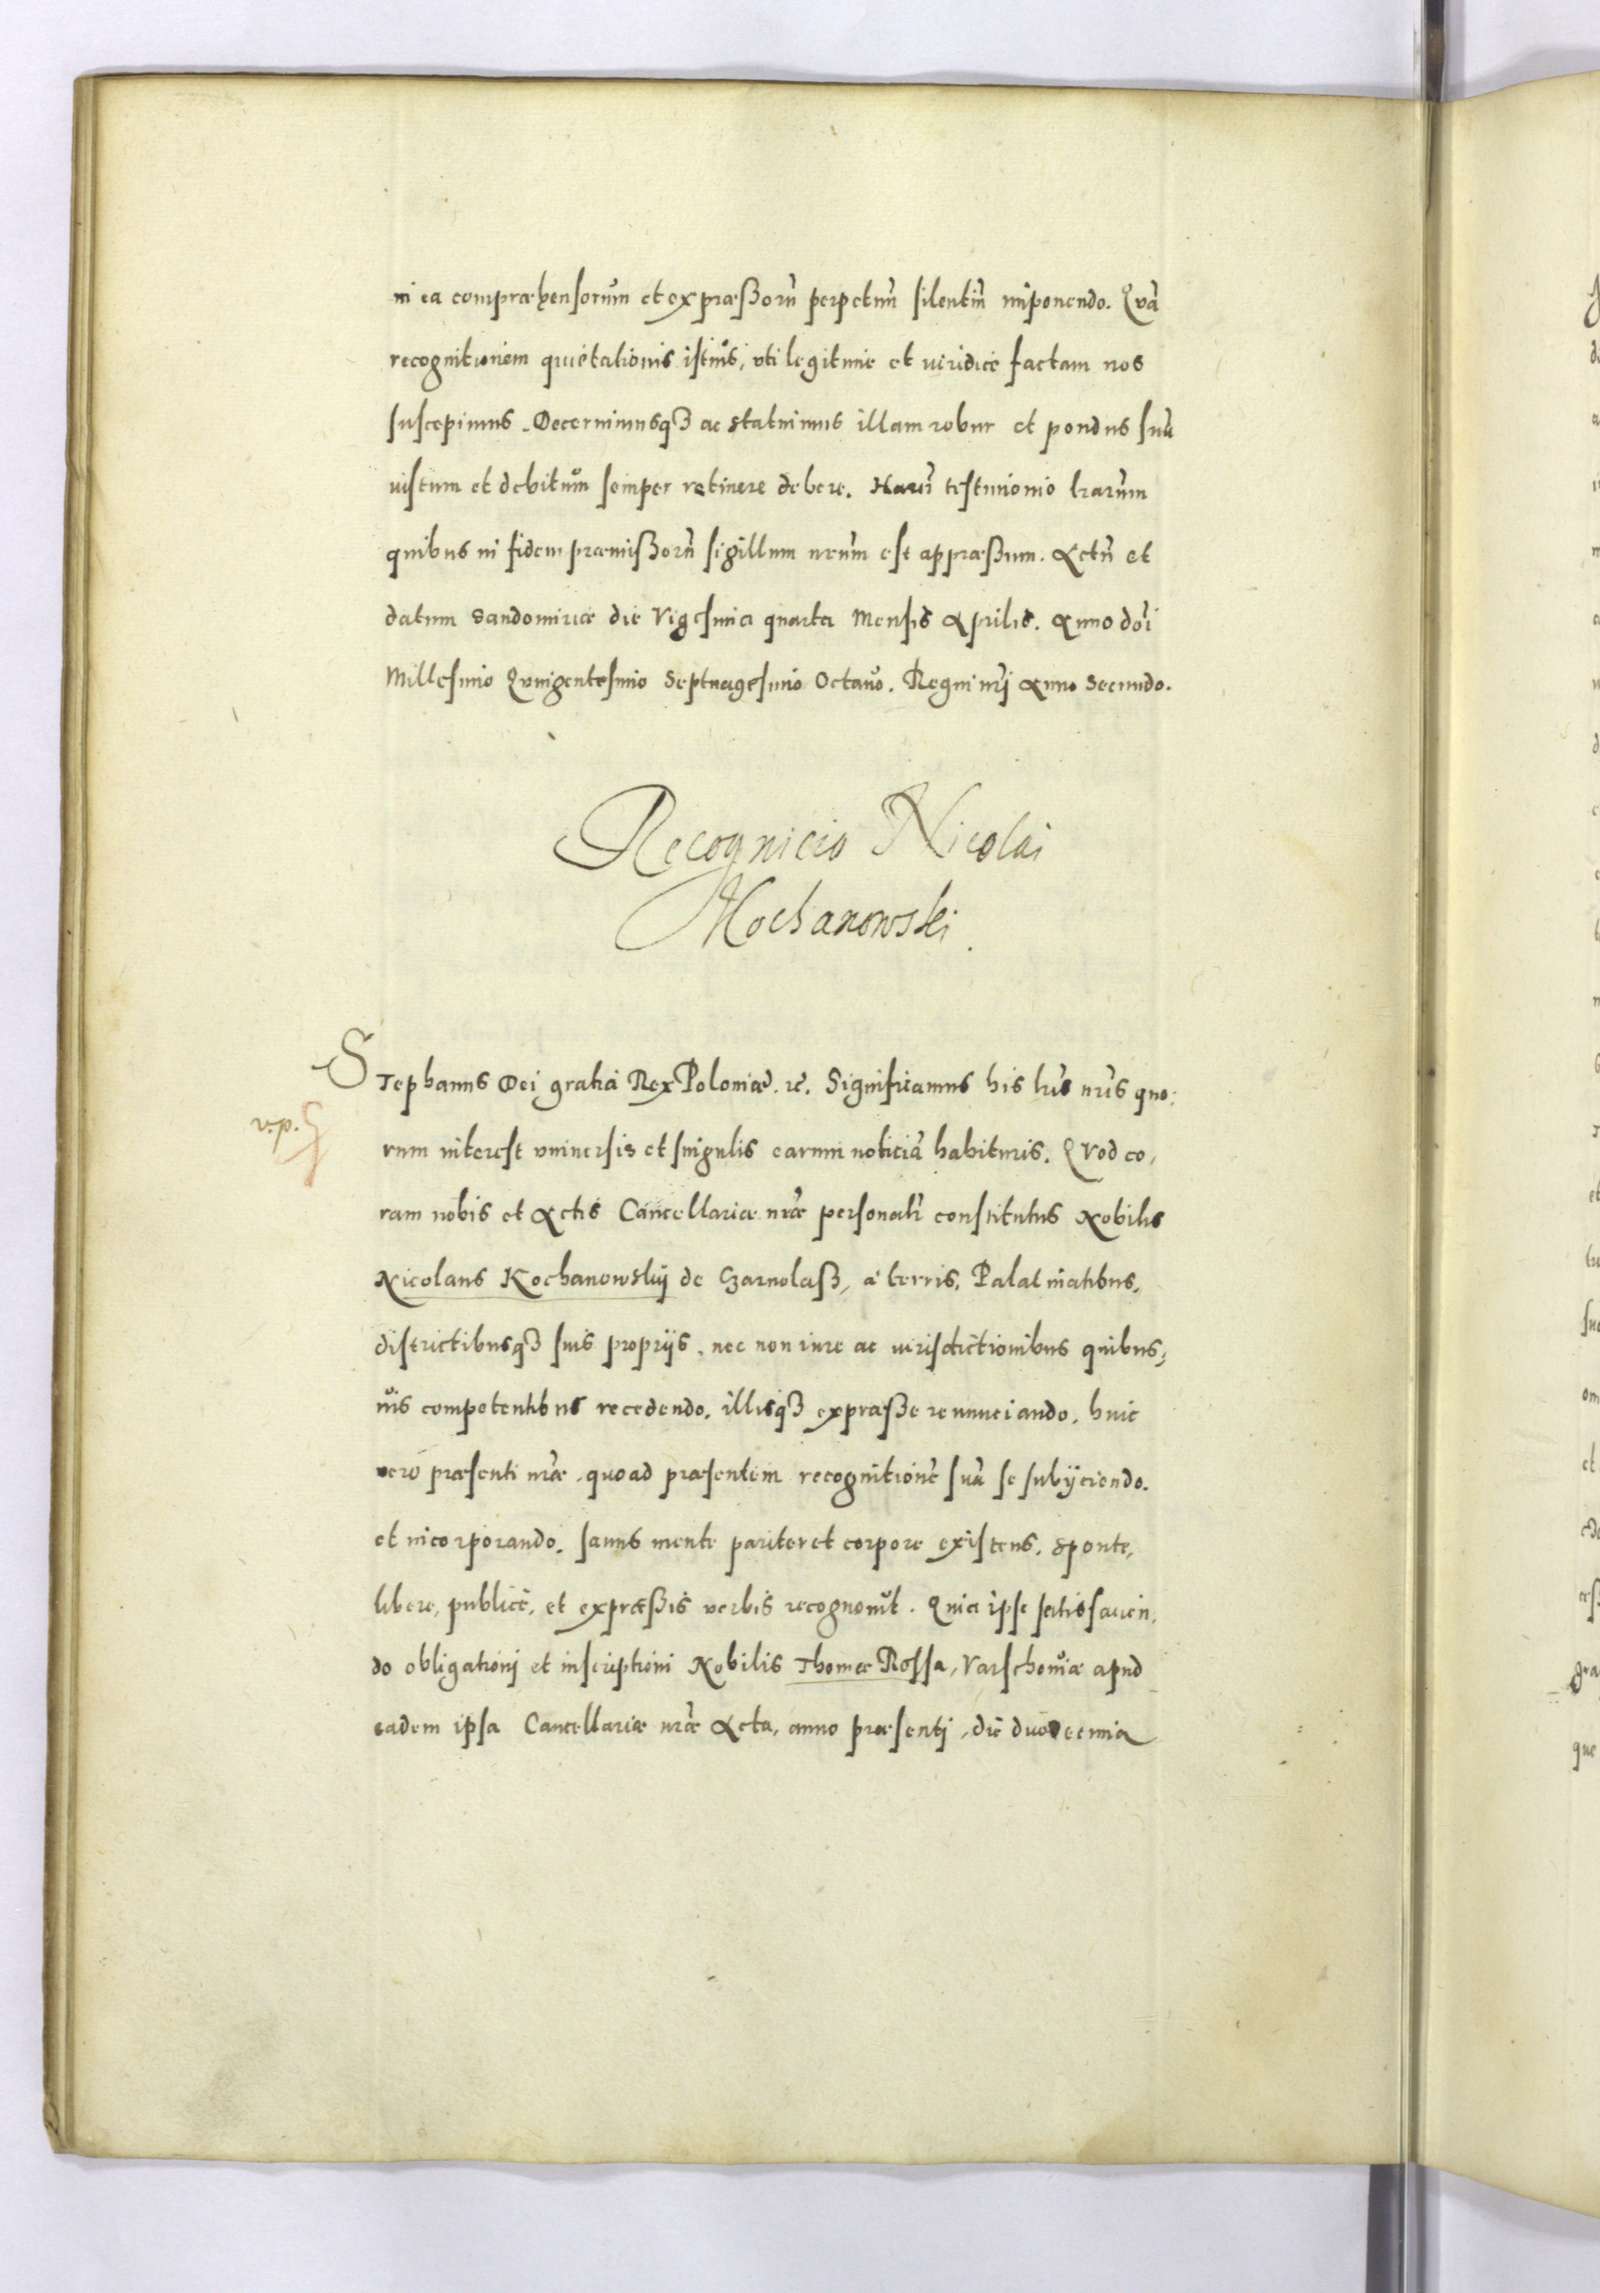 in ea compræhensorum et expræßorũ perpetuũ silentiũ imponendo. Quã
recognitionem quietationis istius, uti legitime et iuridice factam nos
suscepimus. Decernimusqȝ ac statuimus illam robur et pondus suũ
iustum et debitum semper retinere debere. Harũ testimonio lrarum
quibus in fidem præmißorũ sigillum nrum est appræßum. Actũ et
datum Sandomiriæ die Vigesima quarta Mensis Aprilis. Anno dñi
Millesimo Quingentesimo Septuagesimo Octauo. Regni nri Anno Secundo.
Recognicio Nicolai
Kochanowski.
Stephanus Dei gratia Rex Poloniæ. &c. Significamus his lris nris quo:
v.p.
rum interest uniuersis et singulis earum noticiã habituris. Quod co,
ram nobis et Actis Cancellariæ nræ personalr constitutus Nobilis
Nicolaus Kochanowskij de Czarnolaß, à terris, Palatinatibus,
districtibusqȝ suis proprijs, nec non iure ac iurisdictionibus quibus,
uis competentibus recedendo, illisqȝ expræße renunciando, huic
vero præsenti nræ, quoad præsentem recognitionẽ suã se subijciendo.
et incorporando. Sanus mente pariter et corpore existens, sponte,
libere, publice, et expræßis verbis recognouit. Quia ipse satisfacien,
do obligationi et inscriptioni Nobilis Thomæ Rossa, Varschouiæ apud
eadem ipsa Cancellariæ nræ Acta, anno præsenti, die duodecima